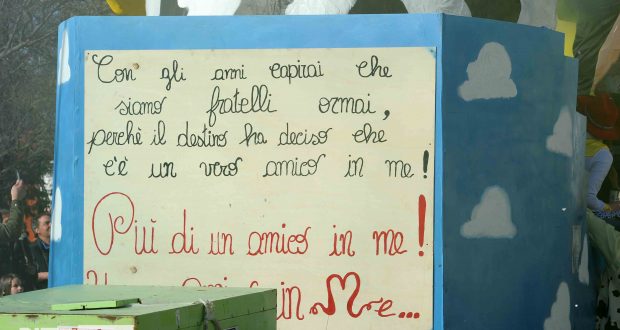 Con gli anni capirai che
siamo fratelli ormai,
perchè il destino ha deciso che
c'è un vero amico in me!
Più di un amico in me!
in Me...